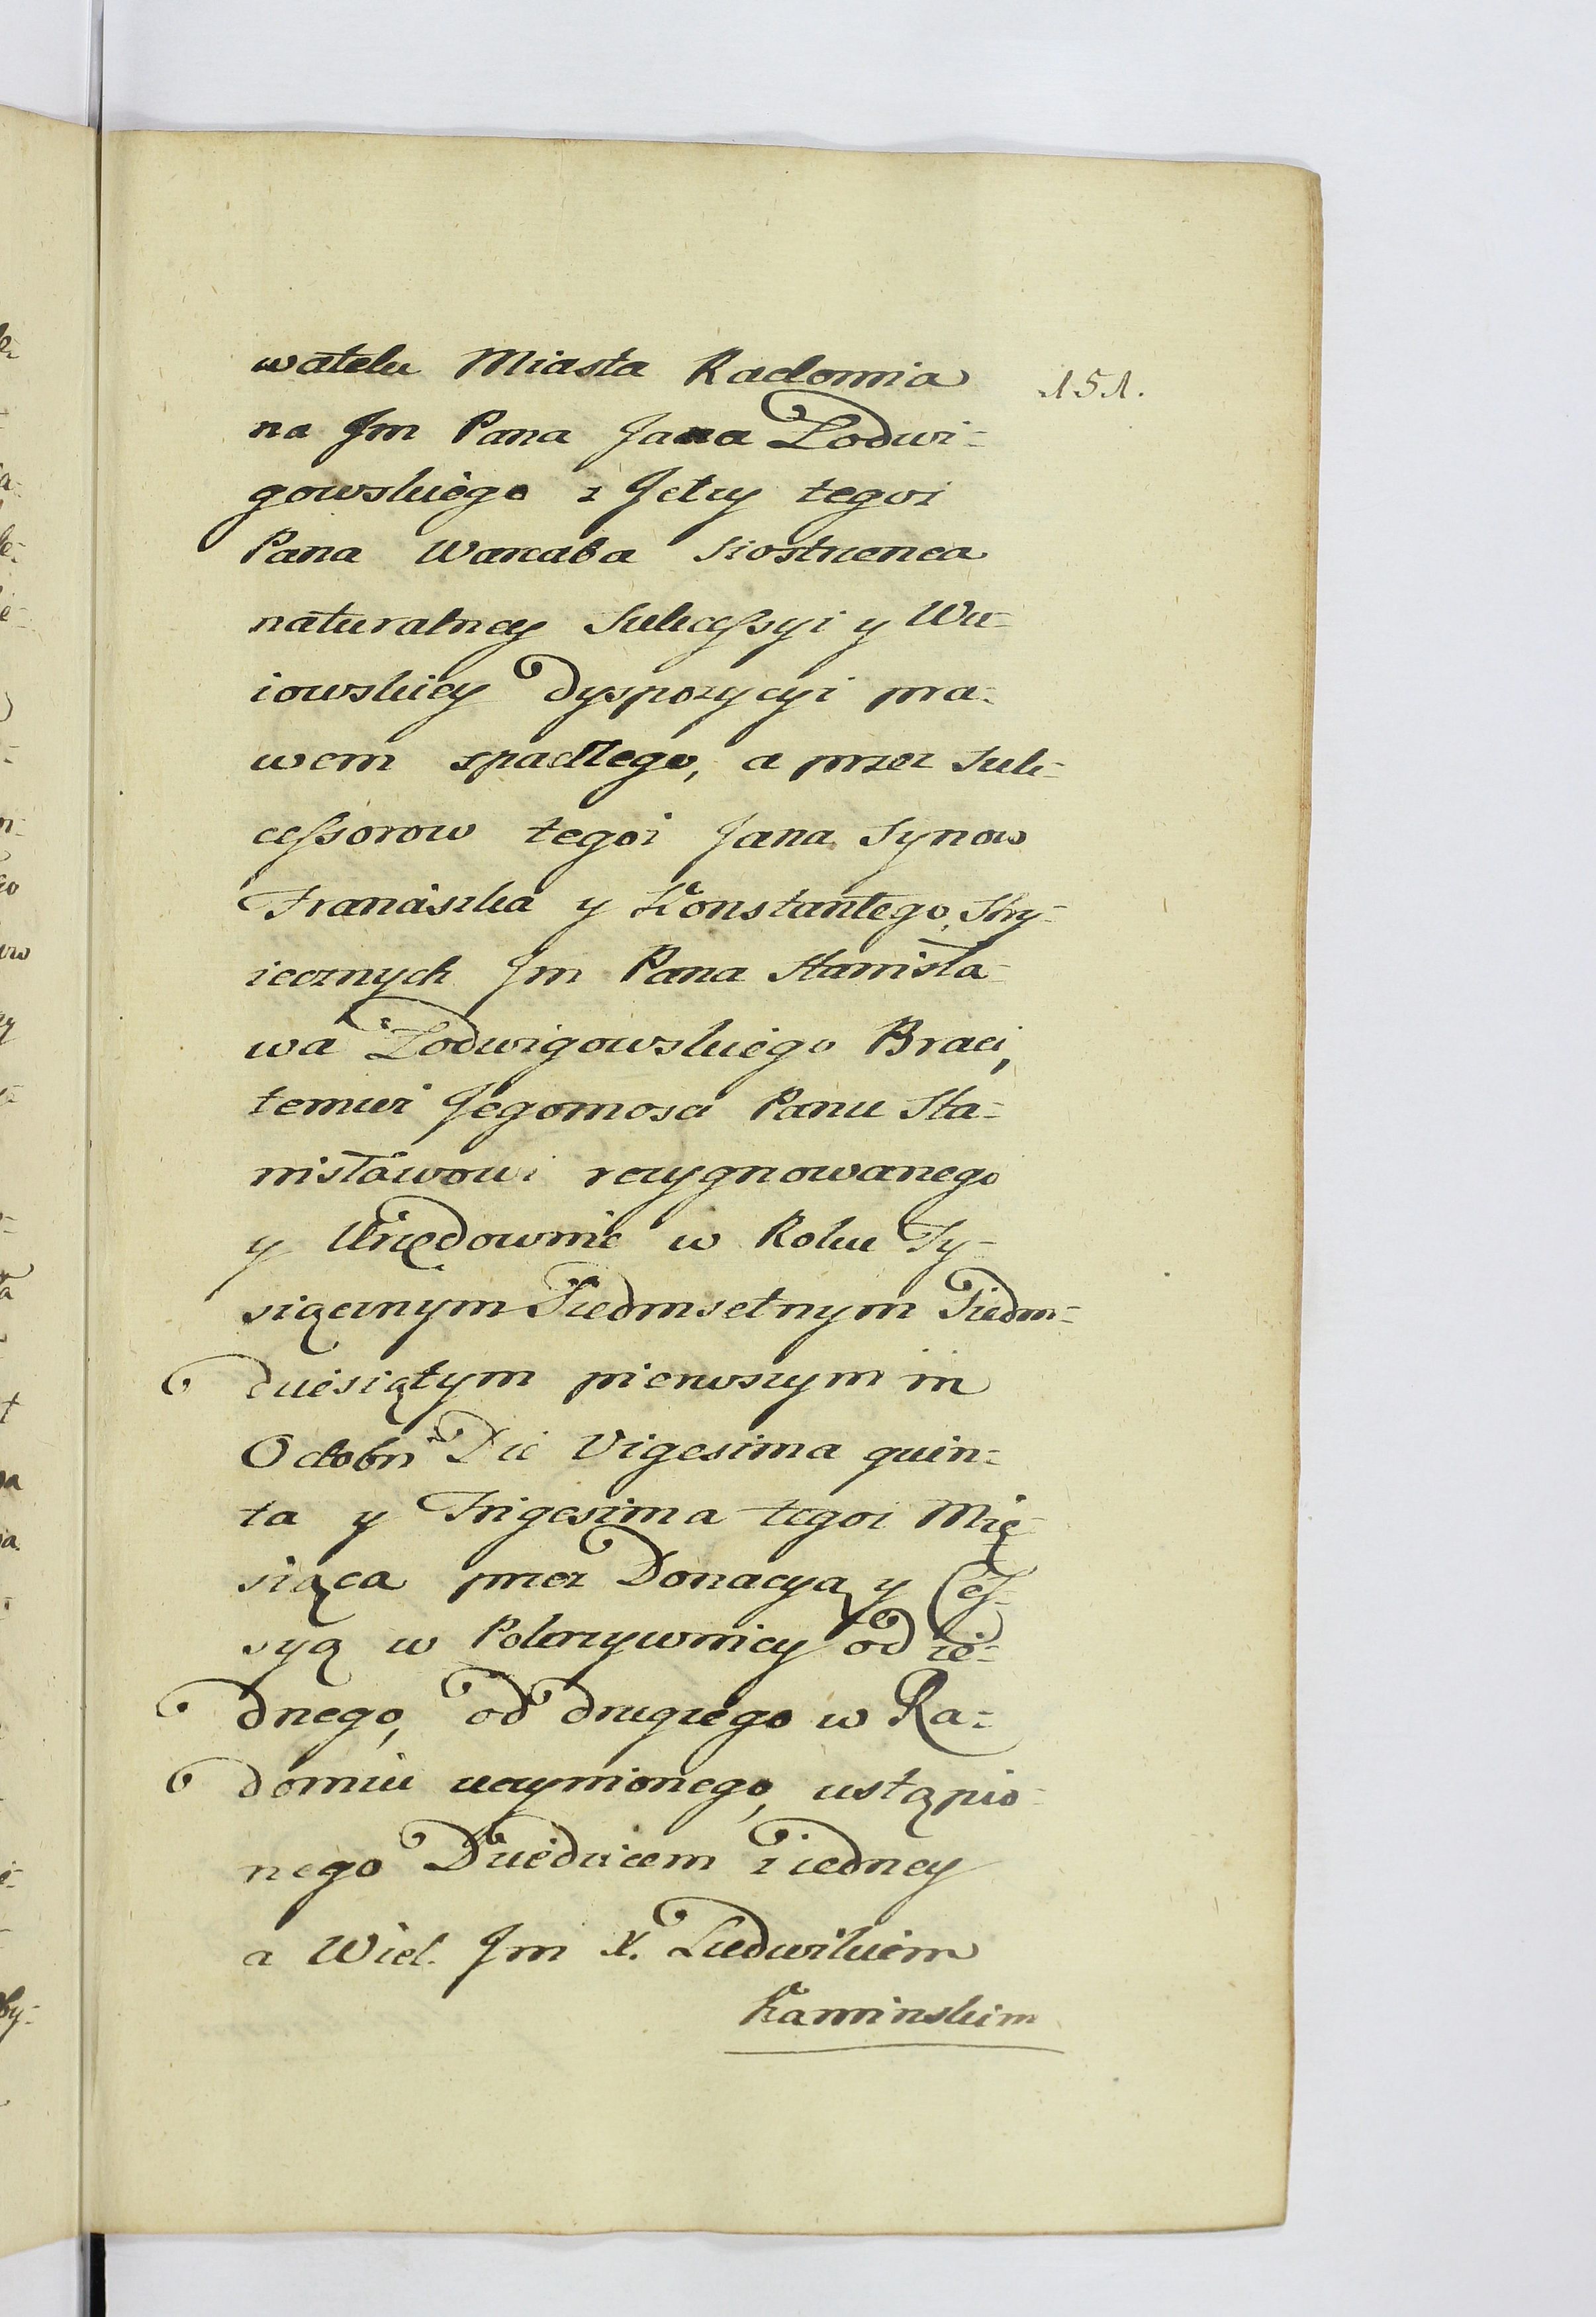 watelu Miasta Radomia
151.
na Jm Pana Jana Łodwi-
gowskiego z Jetzy tegoż
Pana Warcaba siostrzenca
naturalney Sukceſsyi y Wu-
iowskiey Dyspozycyi pra-
wem spadłego, a przez Suk-
ceſsorow tegoż Jana Synow
Franciszka y Konstantego, Stry-
iecznych Jm Pana Stanisła-
wa Łodwigowskiego Braci,
temuż Jegomosci Panu Sta-
nisławowi rezygnowanego
y Urzędownie w Roku Ty-
siącznym Siedmsetnym Siedm-
dziesiątym pierwszym in
Octobri Die Vigesima quin-
ta y Trigesima tegoż Mie-
siąca przez Donacyą y Ceſ-
syą w Pokrzywnicy od ie-
dnego, od drugiego w Ra-
domiu uczynionego, ustąpio-
nego Dziedzicem z iedney
a Wiel. Jm X. Ludwikiem
Kaminskim